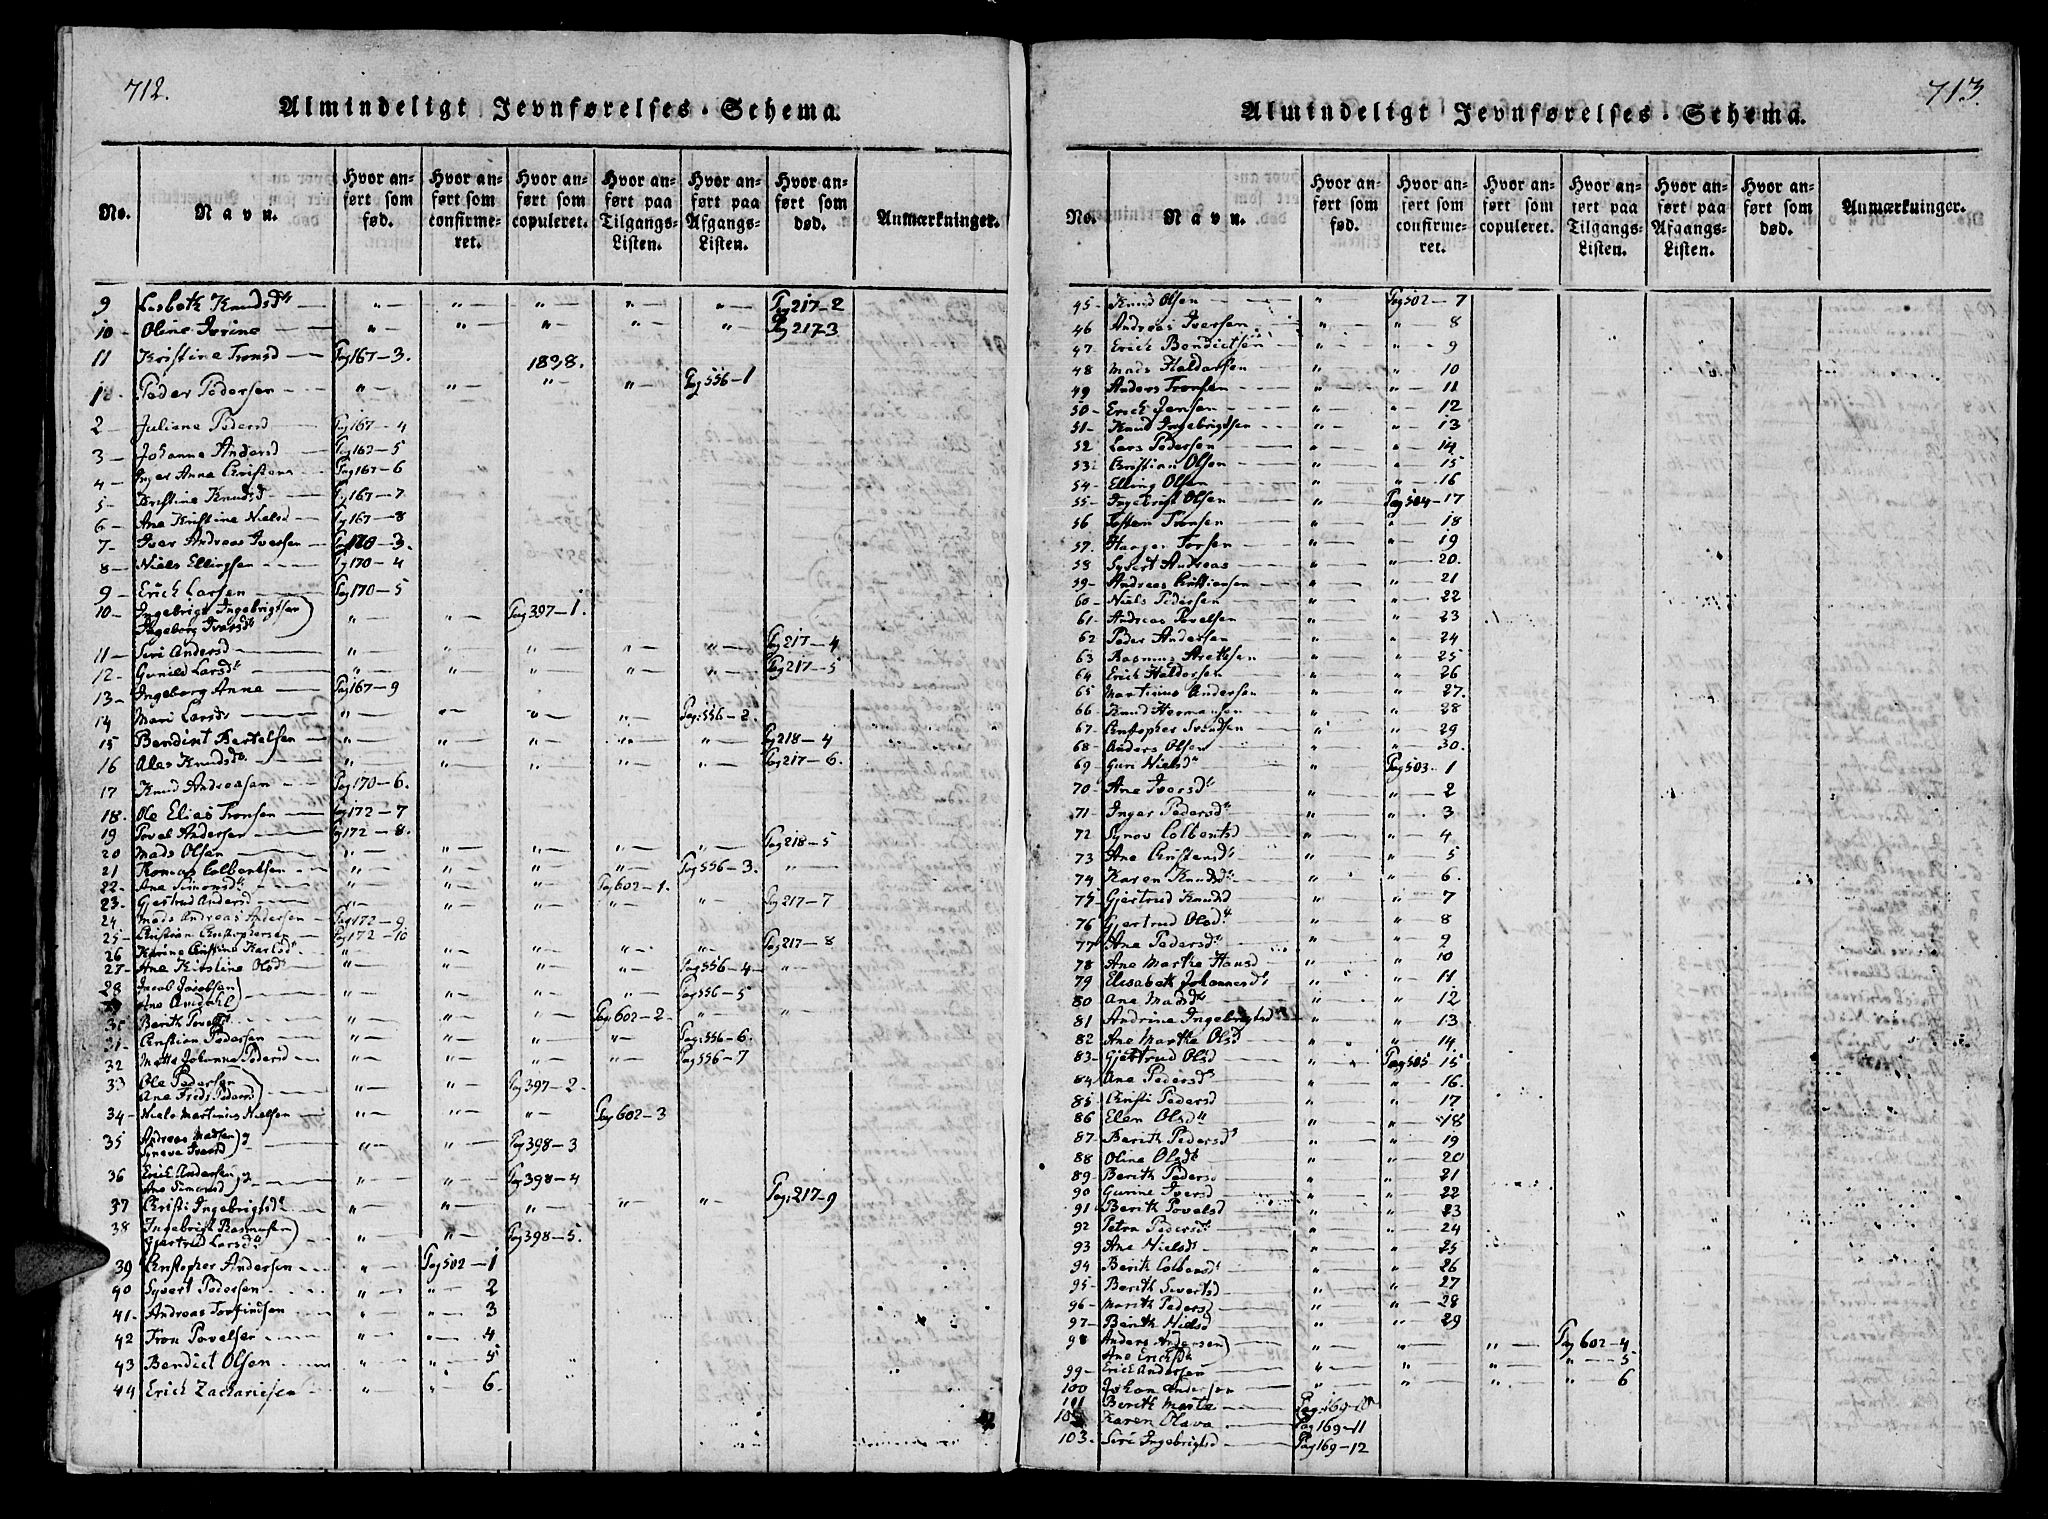 712.
Almindeligt Jevnførelses-Schema.
No. Navn. Hvor anført som fød. Hvor anført som confirmeret. Hvor anført som copuleret. Hvor anført paa Tilgangs-Listen. Hvor anført paa Afgangs-Listen. Hvor anført som død. Anmærkninger.
9 Lisbeth Knudsd. " " " " " Pag 217-2
10 Oline Ivrine " " " " " Pag 217-3
11 Kristine Tronsd Pag 167-3.
1838.
1 Peder Pedersen " " " " Pag 556-1
2 Juliane Pedersd Pag 167-4
3 Johanne Andersd Pag 167-5
4 Inger Anna Christens Pag 167-6
5 Kristine Knudsd Pag 167-7
6 Ane Kristine Nielsd Pag 167-8
7 Iver Andreas Iversen Pag 170-3.
8 Niels Ellingsen Pag 170-4
9 Erich Larsen Pag 170-5
10 Ingebrigt Ingebrigtsen " " Pag 397-1.
Ingeborg Iversd
11 Siri Andersd " " " " " Pag 217-4
12 Gunild Larsd " " " " " Pag 217-5
13 Ingeborg Anne Pag 167-9
14 Mari Larsd " " " " Pag 556-2.
15 Bendixt Bertelsen " " " " " Pag 218-4
16 Ales Knudsd. " " " " " Pag 217-6.
17 Knud Andreasen Pag 170-6.
18. Ole Elias Tronsen Pag 172-7
19 Povel Andersen Pag 172-8.
20 Mads Olsen " " " " " Pag 218-5
21 Tomas Colbentsen " " " " Pag 556-3. "
22 Ane Simonsd " " " Pag 602-1.
23 Gjertrud Andersd " " " " " Pag 217-7
24 Mads Andreas Andersen Pag 172-9
25 Christian Christophersen Pag 172-10
26 Karine Christine Karlsd " " " " " Pag 217-8
27 Ane Kirstine Olsd " " " " Pag 556-4 "
28 Jacob Jacobsen " " " " Pag 556-5
29
30 Berith Povelsd " " " Pag 602-2 " "
31 Christian Pedersen " " " " Pag 556-6
32 Mette Johanne Pedersd " " " " Pag 556-7
33 Ole Pedersen " " Pag 397-2
Ane Fredr. Pedersd
34 Niels Martinus Nielsen " " " Pag 602-3
35 Andreas Madsen " " Pag 398-3
Synneve Iversd
36 Erich Andersen " " Pag 398-4
Ane Simonsd
37 Christi Ingebrigtsd " " " " " Pag 217-9
38 Ingebrigt Rasmusen " " Pag 398-5.
Gjertrud Larsd
39 Christopher Andersen " Pag 502-1
40 Syvert Pedersen " " 2
41 Andreas Torfindsen " " 3
42 Tron Povelsen " " 4
43 Bendict Olsen " " 5
44 Erich Zachariesen " " 6.
713.
Almindeligt Jevnførelses-Schema.
No. Navn. Hvor anført som fød. Hvor anført som confirmeret. Hvor anført som copuleret. Hvor anført paa Tilgangs-Listen. Hvor anført paa Afgangs-Listen. Hvor anført som død. Anmærkninger.
45 Knud Olsen " Pag 502-7
46 Andreas Iversen " " 8
47 Erich Bendictsen " " 9
48 Mads Haldorsen " " 10
49 Anders Tronsen " " 11
50 Erich Jensen " " 12
51 Knud Ingebrigtsen " " 13
52 Lars Pedersen " " 14
53 Christian Olsen " " 15
54 Elling Olsen " " 16
55 Ingebrigt Olsen " Pag 504-17
56 Tosten Tronsen " " 18
57. Haagen Torsen " " 19
58 Syvert Andreas " " 20.
59 Andreas Christiansen " " 21
60 Niels Pedersen " " 22
61 Andreas Povelsen " " 23
62 Peder Andersen " " 24
63 Rasmus Arethsen " " 25
64 Erich Haldorsen " " 26
65 Martinus Andersen " " 27.
66 Knud Hermansen " " 28
67 Christopher Svendsen " " 29
68 Anders Olsen " " 30.
69 Guri Nielsd " Pag 503-1
70 Ane Iversd " " 2
71 Inger Pedersd " " 3
72 Synov Colbentsd " " 4
73 Ane Christensd " " 5
74 Karen Knudsd " " 6.
75 Gjertrud Knudsd " " 7
76 Gjertrud Olsd " " 8
77 Ane Pedersd " " 9
78 Ane Marthe Hansd " " 10
79 Elisabeth Johannesd " " 11.
80 Ane Madsd " " 12
81 Andrine Ingebrigtsd " " 13
82 Ane Marthe Olsd " " 14.
83 Gjertrud Olsd " Pag 505-15
84 Ane Pedersd " " 16.
85 Christi Pedersd " " 17
86 Elen Olsd " " 18
87 Berith Pedersd " " 19
88 Oline Olsd " " 20
89 Berith Pedersd " " 21
90 Gunne Iversd " " 22
91 Berith Povelsd " " 23
92 Petra Pedersd " " 24
93 Ane Nielsd " " 25
94 Berith Colbensd " " 26
95 Berith Sivertsd " " 27
96 Marith Pedersd " " 28
97 Berith Nielsd " " 29
98 Anders Andersen " " " Pag 602-4
Ane Erichsd
99 Erich Andersen " " " " 5
100 Johan Andersen " " " " 6
101 Berith Marta Pag. 169-10
102 Karen Olava Pag 169-11
103. Siri Ingebrigtsd Pag 169-12